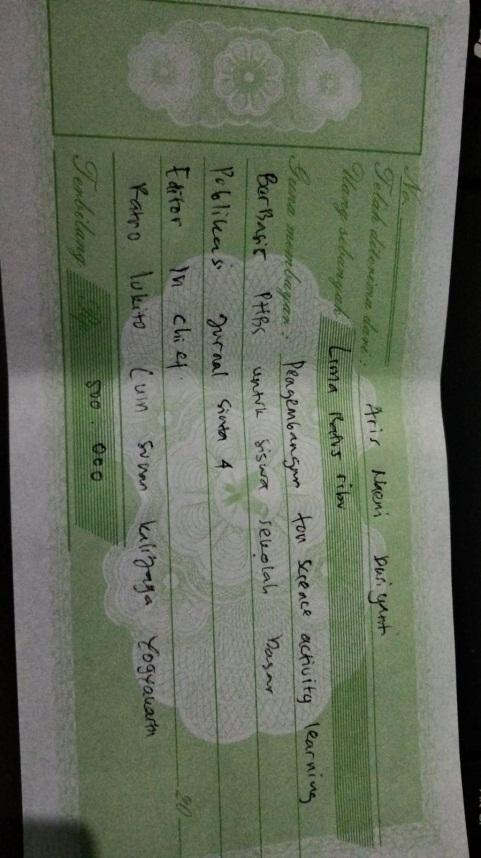 No.
Telah diterima dari : Aris Naeni Dwiyanti
Uang sebanyak Lima Ratus ribu
Guna membayar : Pengembangan fun science activity learning
BerBasis PHBS untuk siswa sekolah Dasar
Publikasi Jurnal Sinta 4
Editor In chief.
Ratno Lukito (uin sunan kalijaga Yogyakarta
20
Terbilang Rp 500.000